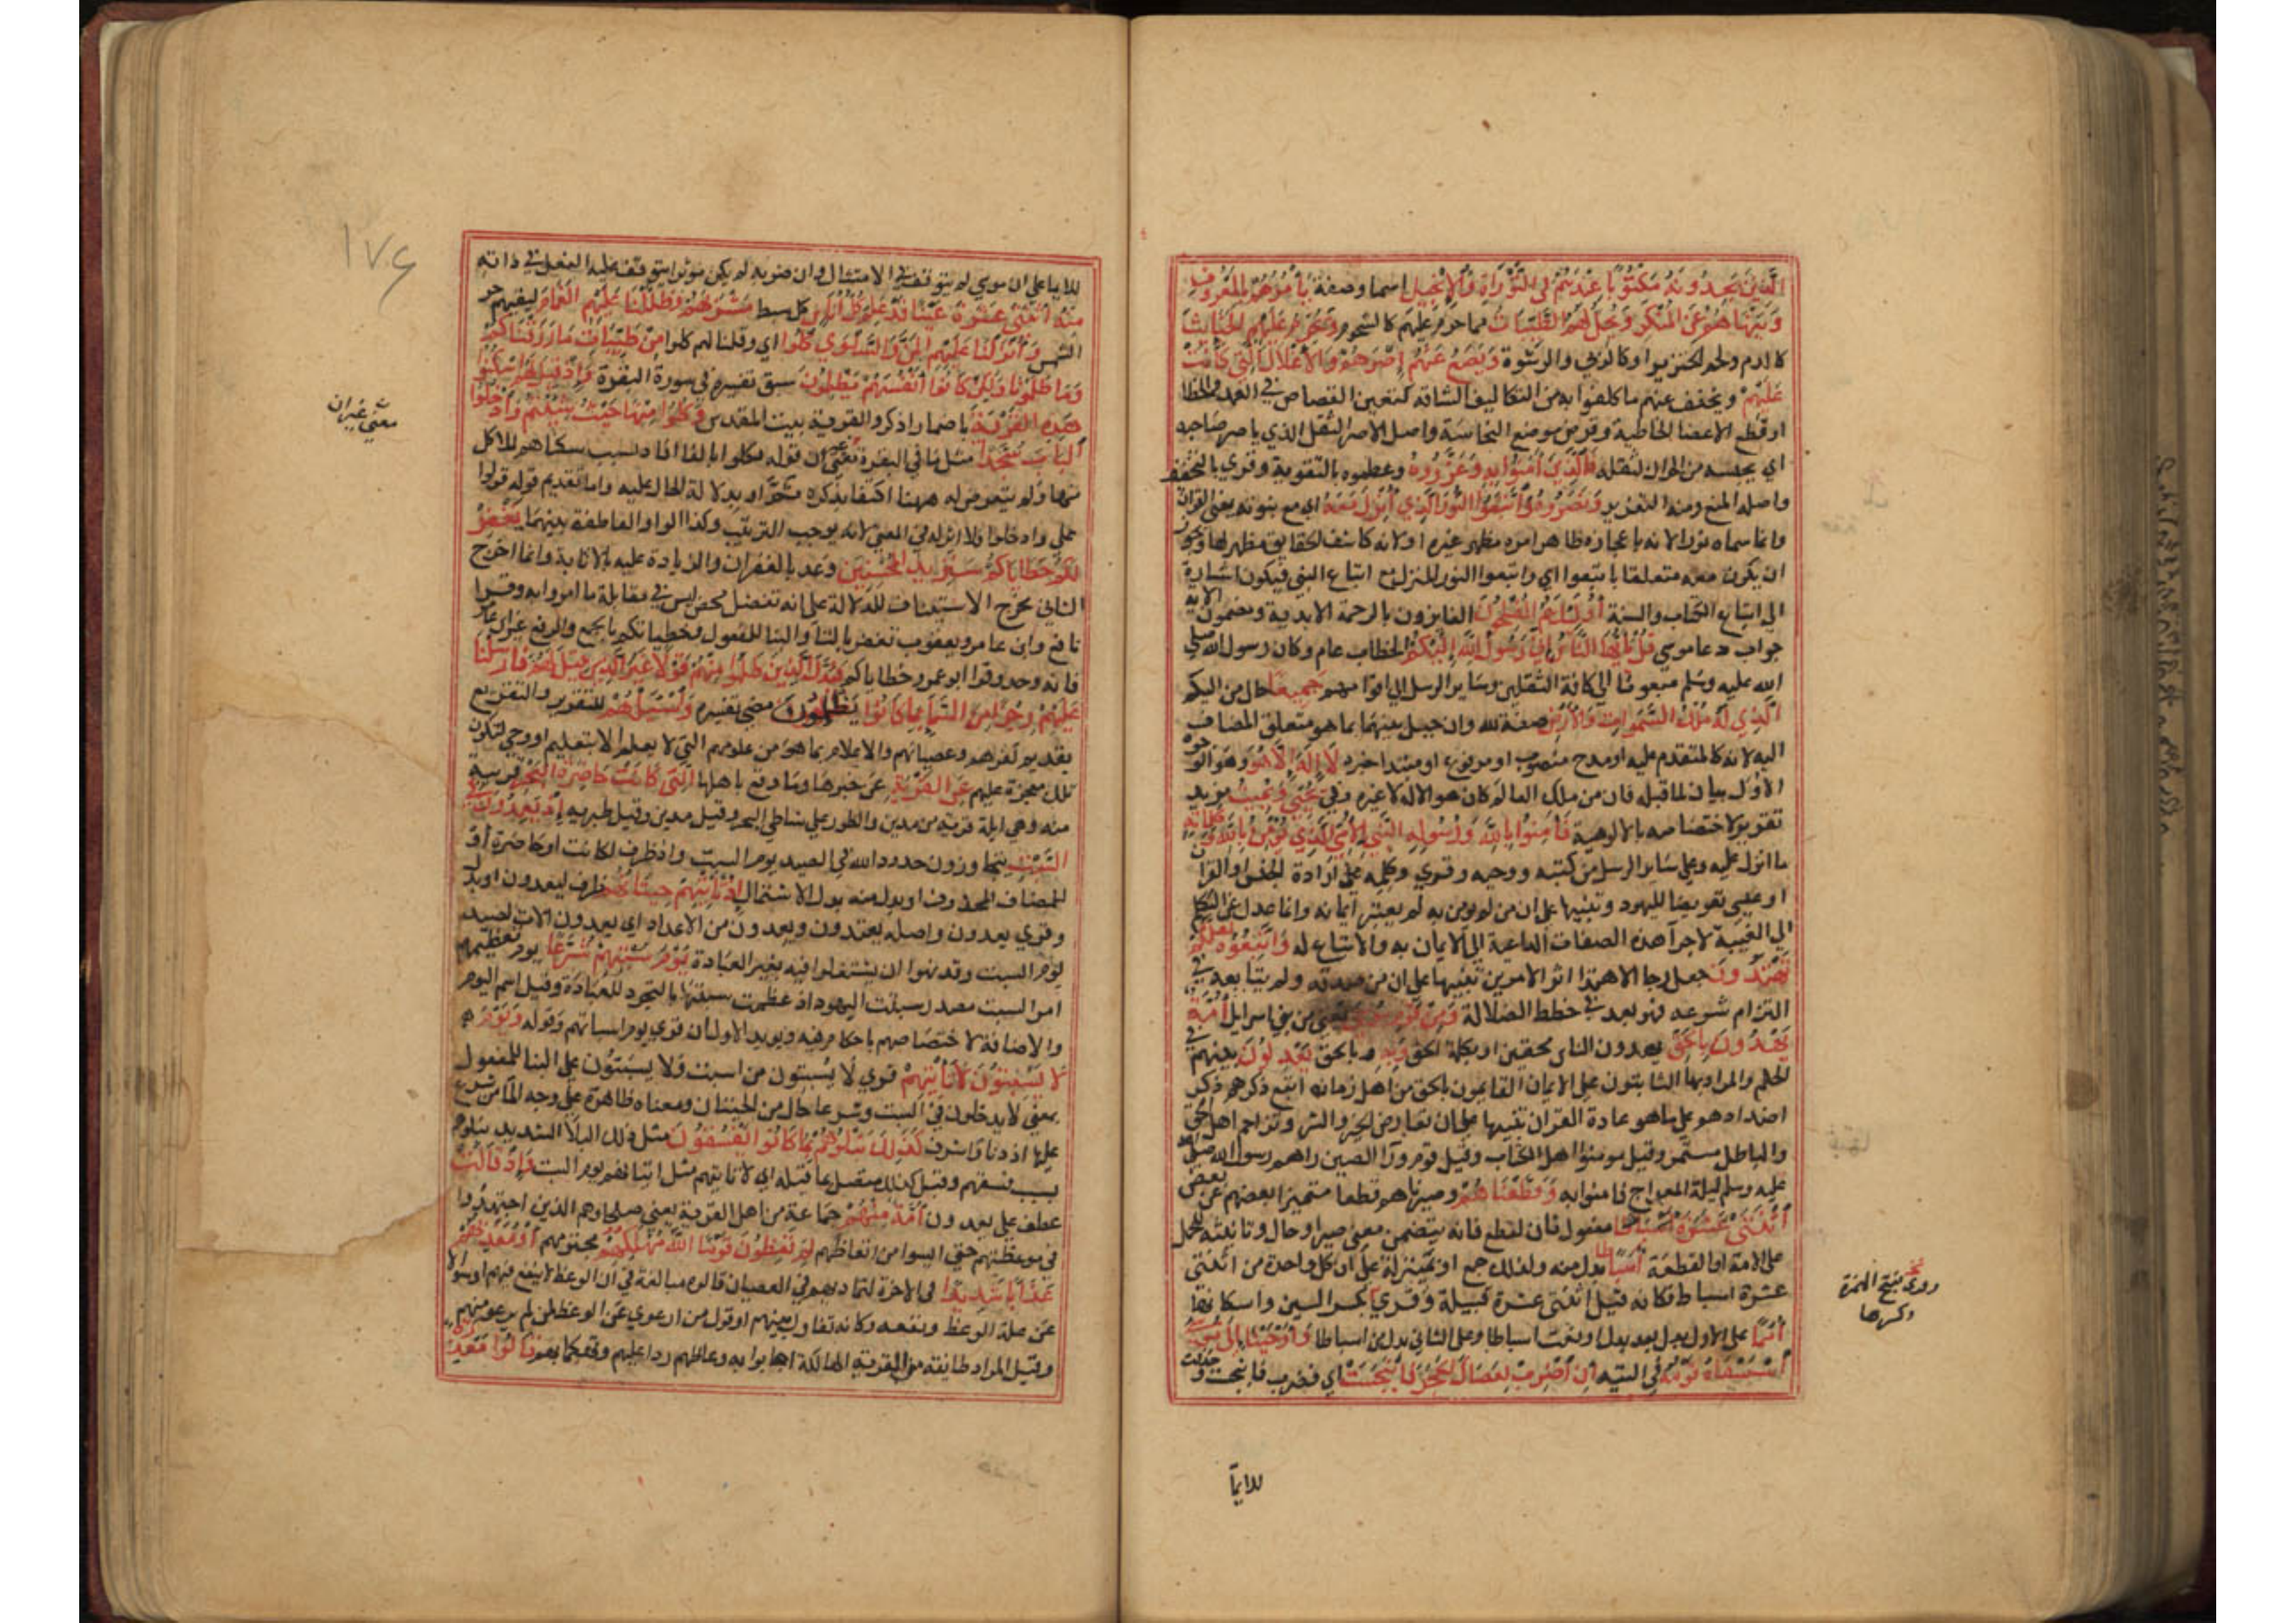 الَّذِينَ يَجِدُونَهُ مَكْتُوبًا عِنْدَهُمْ فِي التَّوْرَاةِ وَالْإِنْجِيلِ اسما وصفة يَأْمُرُهُمْ بِالْمَعْرُوفِ
وَيَنْهَاهُمْ عَنِ الْمُنْكَرِ وَيُحِلُّ لَهُمُ الطَّيِّبَاتِ مما حرم عليهم كالشحوم وَيُحَرِّمُ عَلَيْهِمُ الْخَبَائِثَ
كالدم ولحم الخنزير او كالربي والرشوة وَيَضَعُ عَنْهُمْ إِصْرَهُمْ وَالْأَغْلَالَ الَّتِي كَانَتْ
عَلَيْهِمْ ويخفف عنهم ما كلفوا به من التكاليف الشاقة كتعين القصاص في العمد والخطا
او قطع الاعضا الخاطية وقرض موضع النجاسة واصل الاصر الثقل الذي ياصر صاحبه
اي يحبسه من الحراك لثقله فَالَّذِينَ آمَنُوا بِهِ وَعَزَّرُوهُ وعظموه بالتقوية وقري بالتخفيف
واصله المنع ومنه التعزير وَنَصَرُوهُ وَاتَّبَعُوا النُّورَ الَّذِي أُنْزِلَ مَعَهُ اي مع نبوته يعني القران
وانما سماه نورا لانه باعجازه ظاهر امره مظهر غيره او لانه كاشف الحقايق مظهر لها ويجوز
ان يكون معه متعلقا باتبعوا اي واتبعوا النور المنزل مع اتباع النبي فيكون اشارة
الي اتباع الكتاب والسنة أُولَئِكَ هُمُ الْمُفْلِحُونَ الفايزون بالرحمة الابدية ومضمون الاية
جواب دعا موسي قُلْ يَا أَيُّهَا النَّاسُ إِنِّي رَسُولُ اللَّهِ إِلَيْكُمْ الخطاب عام وكان رسول الله صلي
الله عليه وسلم مبعوثا الي كافة الثقلين وساير الرسل الي اقوامهم جَمِيعًا حال من اليكم
الَّذِي لَهُ مُلْكُ السَّمَوَاتِ وَالْأَرْضِ صفة لله وان حيل بينهما بما هو متعلق المضاف
اليه لانه كالمتقدم عليه او مدح منصوب او مرفوع او مبتدا خبره لَا إِلَهَ إِلَّا هُوَ وهو علي الوجوه
الاول بيان لما قبله فان من ملك العالم كان هو الاله لا غيره وفي يُحْيِي وَيُمِيتُ مزيد
تقرير لاختصاصه بالالوهية فَآمِنُوا بِاللَّهِ وَرَسُولِهِ النَّبِيِّ الْأُمِّيِّ الَّذِي يُؤْمِنُ بِاللَّهِ وَكَلِمَاتِهِ
ما انزل عليه وعلي ساير الرسل من كتبه ووحيه وقري وكلمته علي ارادة الجنس او القران
او عيسي تعريضا لليهود وتنبيها علي ان من لم يومن به لم يعتبر ايمانه وانما عدل عن التكلم
الي الغيبة لاجرا هذه الصفات الداعية الي الايمان به والاتباع له وَاتَّبِعُوهُ لَعَلَّكُمْ
تَهْتَدُونَ جعل رجا الاهتدا اثر الامرين تنبيها علي ان من صدقه ولم يتابعه في
التزام شرعه فهو بعد في خطط الضلالة وَمِنْ قَوْمِ مُوسَى يعني من بني اسرايل أُمَّةٌ
يَهْدُونَ بِالْحَقِّ يهدون الناس محقين او بكلمة الحق وَبِهِ وبالحق يَعْدِلُونَ بينهم في
الحكم والمراد بها الثابتون علي الايمان القايمون بالحق من اهل زمانه اتبع ذكرهم ذكر
اضدادهم علي ما هو عادة القران تنبيها علي ان تعارض الخير والشر وتزاحم اهل الحق
والباطل مستمر وقيل مومنوا اهل الكتاب وقيل قوم ورا الصين راهم رسول الله صلي الله
عليه وسلم ليلة المعراج فامنوا به وَقَطَّعْنَاهُمْ وصيرناهم قطعا متميزا بعضهم عن بعض
اثْنَتَيْ عَشْرَةَ أَسْبَاطًا مفعول ثان لقطع فانه يتضمن معني صير او حال وتانيثه للحمل
علي الامة او القطعة أَسْبَاطًا بدل منه ولذلك جمع او تمييز له علي ان كل واحدة من اثنتي
عشرة اسباط فكانه قيل اثنتي عشرة قبيلة وقري بكسر الشين واسكانها
أُمَمًا علي الاول بدل بعد بدل او نعت اسباطا وعلي الثاني بدل من اسباطا وَأَوْحَيْنَا إِلَى مُوسَى
إِذِ اسْتَسْقَاهُ قَوْمُهُ في التيه أَنِ اضْرِبْ بِعَصَاكَ الْحَجَرَ فَانْبَجَسَتْ اي فضرب فانبجست وحذفه
روي بفتح الهمزة
وكسرها
للايما
١٧٤
للايما علي ان موسي لم يتوقف في الامتثال وان ضربه لم يكن موثرا يتوقف عليه الفعل في ذاته
مِنْهُ اثْنَتَا عَشْرَةَ عَيْنًا قَدْ عَلِمَ كُلُّ أُنَاسٍ كل سبط مَشْرَبَهُمْ وَظَلَّلْنَا عَلَيْهِمُ الْغَمَامَ ليقيهم حر
الشمس وَأَنْزَلْنَا عَلَيْهِمُ الْمَنَّ وَالسَّلْوَى كُلُوا اي وقلنا لهم كلوا مِنْ طَيِّبَاتِ مَا رَزَقْنَاكُمْ
وَمَا ظَلَمُونَا وَلَكِنْ كَانُوا أَنْفُسَهُمْ يَظْلِمُونَ سبق تفسيره في سورة البقرة وَإِذْ قِيلَ لَهُمُ اسْكُنُوا
هَذِهِ الْقَرْيَةَ باضمار اذكر والقرية بيت المقدس وَكُلُوا مِنْهَا حَيْثُ شِئْتُمْ وَادْخُلُوا
الْبَابَ سُجَّدًا مثل ما في البقرة معني غير ان قوله فكلوا بالفا افاد تسبب سكناهم للاكل
منها ولم يتعرض له ههنا اكتفا بذكره ثمة او بدلالة الحال عليه واما تقديم قوله قولوا
علي وادخلوا فلا اثر له في المعني لانه لا يوجب الترتيب وكذا الواو العاطفة بينهما نَغْفِرْ
لَكُمْ خَطَايَاكُمْ سَنَزِيدُ الْمُحْسِنِينَ وعد بالغفران والزيادة عليه بالاثابة وانما اخرج
الثاني مخرج الاستيناف للدلالة علي انه تفضل محض ليس في مقابلة ما امروا به وقرا
نافع وابن عامر ويعقوب تغفر بالتا والبنا للمفعول وخطياتكم بالجمع والرفع غير ابن عامر
فانه وحد وقرا ابو عمرو خطاياكم فَبَدَّلَ الَّذِينَ ظَلَمُوا مِنْهُمْ قَوْلًا غَيْرَ الَّذِي قِيلَ لَهُمْ فَأَرْسَلْنَا
عَلَيْهِمْ رِجْزًا مِنَ السَّمَاءِ بِمَا كَانُوا يَظْلِمُونَ مضي تفسيره وَاسْأَلْهُمْ للتقرير والتقريع
بقديم كفرهم وعصيانهم والاعلام بما هو من علومهم التي لا تعلم الا بتعليم او وحي لتكون
تلك معجزة عليهم عَنِ الْقَرْيَةِ عن خبرها وما وقع باهلها الَّتِي كَانَتْ حَاضِرَةَ الْبَحْرِ قريبة
منه وهي ايلة قرية من مدين والطور علي شاطي البحر وقيل مدين وقيل طبرية إِذْ يَعْدُونَ فِي
السَّبْتِ يتجاوزون حدود الله في الصيد يوم السبت واذ ظرف لكانت او حاضرة او
للمضاف المحذوف او بدل منه بدل الاشتمال إِذْ تَأْتِيهِمْ حِيتَانُهُمْ ظرف ليعدون او بدل
وقري يعدون واصله يعتدون ويعدون من الاعداد اي يعدون الات الصيد
يوم السبت وقد نهوا ان يشتغلوا فيه بغير العبادة يَوْمَ سَبْتِهِمْ شُرَّعًا يوم تعظيمهم
امر السبت مصدر سبتت اليهود اذ عظمت سبتها بالتجرد للعبادة وقيل اسم لليوم
والاضافة لاختصاصهم باحكام فيه ويويد الاول ان قري يوم اسباتهم وقوله وَيَوْمَ
لَا يَسْبِتُونَ لَا تَأْتِيهِمْ قري لا يُسبتون من اسبت ولا يُسبَتون علي البنا للمفعول
بمعني لا يدخلون في السبت وشرعا حال من الحيتان ومعناه ظاهرة علي وجه الما من شرع
عليها اذ دنا واشرف كَذَلِكَ نَبْلُوهُمْ بِمَا كَانُوا يَفْسُقُونَ مثل ذلك البلا الشديد نبلوهم
بسبب فسقهم وقيل كذلك متصل بما قبله اي لا تاتيهم مثل اتيانهم يوم السبت وَإِذْ قَالَتْ
عطف علي يعدون أُمَّةٌ مِنْهُمْ جماعة من اهل القرية يعني صلحاوهم الذين اجتهدوا
في موعظتهم حتي ايسوا من اتعاظهم لِمَ تَعِظُونَ قَوْمًا اللَّهُ مُهْلِكُهُمْ مخترمهم أَوْ مُعَذِّبُهُمْ
عَذَابًا شَدِيدًا في الاخرة لتماديهم في العصيان قالوه مبالغة في ان الوعظ لا ينفع فيهم او سوالا
عن علة الوعظ ونفعه وكانه تقاول بينهم او قول من ارعوي عن الوعظ لمن لم يرعو منهم
وقيل المراد طايفة من القرية الهالكة اجابوا به وعاظهم ردا عليهم وتهكما بهم قَالُوا مَعْذِرَةً
معني غير ان